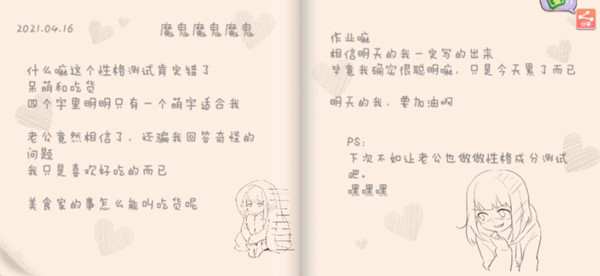 2021.04.16
魔鬼魔鬼魔鬼
什么嘛这个性格测试肯定错了
呆萌和吃货
四个字里明明只有一个萌字适合我
老公竟然相信了，还骗我回答奇怪的
问题
我只是喜欢好吃的而已
美食家的事怎么能叫吃货呢
分享
作业嘛
相信明天的我一定写的出来
毕竟我确实很聪明嘛，只是今天累了而已
明天的我，要加油啊
PS:
下次不如让老公也做做性格成分测试
吧。
嘿嘿嘿